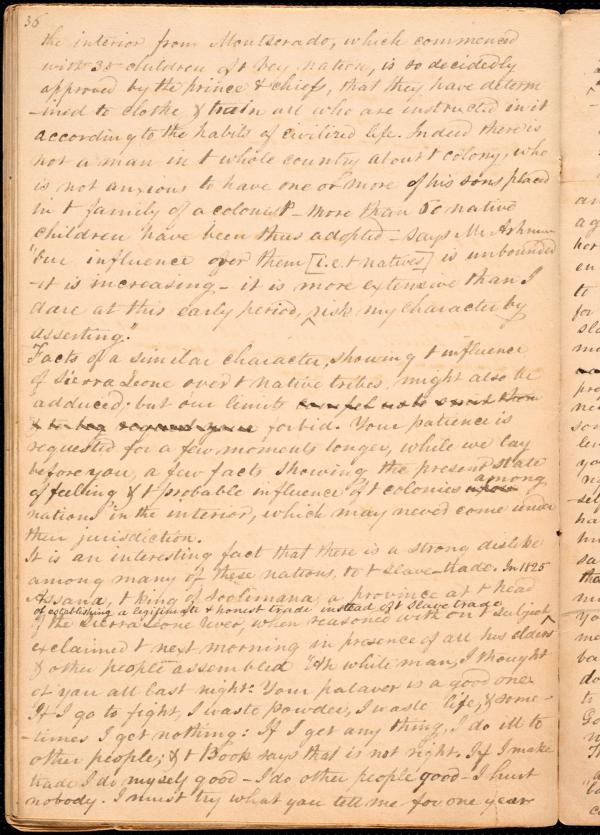 36
the interior from Montserado, which commenced
with 35 children of t Vey nation, is so decidedly
approved by the prince & chiefs, that they have determ
-ined to clothe & train all who are instructed in it
according to the habits of civilized life. Indeed there is
not a man in t whole country about t colony, who
is not anxious to have one or more of his sons placed
in t family of a colonist - more than 60 native
children have been thus adopted - says Mr Ashmun
"Our influence over them [i.e. t natives] is unbounded
-it is increasing - it is more extensive than I
dare at this early period, ^ risk my character by
asserting."
Facts of a similar character, showing t influence
of Sierra Leone over t native tribes, might also be
adduced; but our limits
forbid. Your patience is
requested for a few moments longer, while we lay
before you, a few facts showing the present state
of feeling & t probable influence of t colonies among
nations in the interior, which may never come under
their jurisdiction.
It is an interesting fact that there is a strong dislike
among many of these nations, to t slave-trade. In 1825
Assana, t king of Soolimana, a province at t head
of establishing a legitimate & honest trade instead of t slave trade
of the Sierra Leone river, when reasoned with on t subject ^
exclaimed t next morning in presence of all his elders
& other people assembled "Ah white man, I thought
of you all last night. Your palaver is a good one.
If I go to fight, I waste powder, I waste life, & some-
-times I get nothing: If I get any thing, I do ill to
other people; & t Book says that is not right. If I make
trade I do myself good - I do other people good - I hurt
nobody. I must try what you tell me for one year